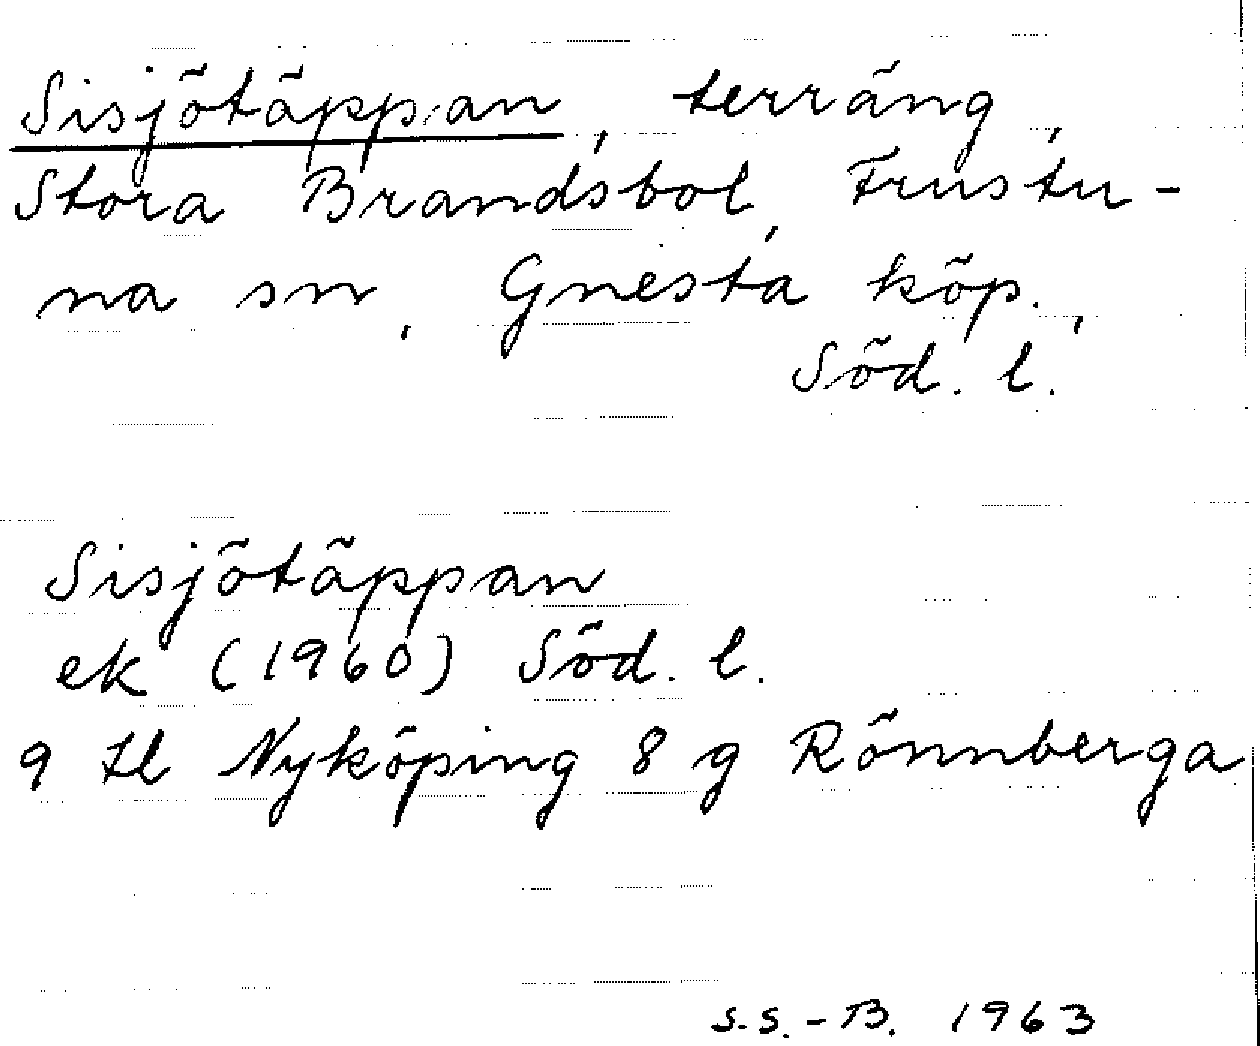 Sisjötäppan, terräng,
Stora Brandsbol, Frustu-
na sn, Gnesta köp.,
Söd. l.
Sisjötäppan
ek (1960) Söd. l.
9 tl Nyköping 8 g Rönnberga
S.S.-B. 1963